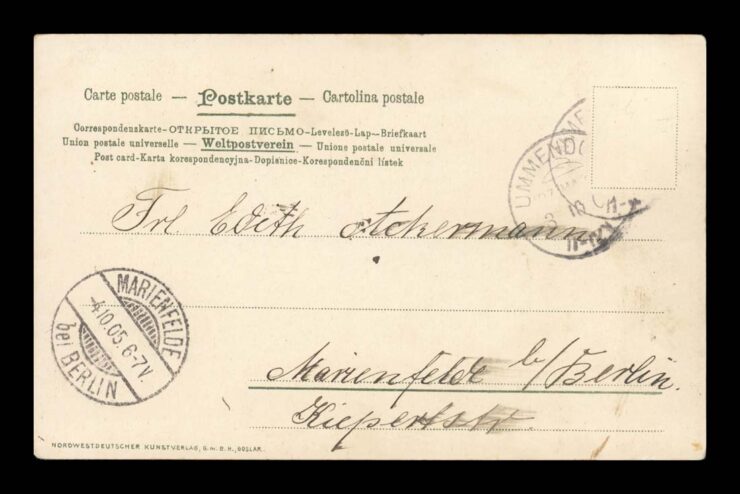 Carte postale — Postkarte — Cartolina postale
Correspondenskarte-ОТКРЫТОЕ ПИСЬМО-Levelező-Lap-Briefkaart
Union postale universelle — Weltpostverein — Unione postale universale
Post card-Karta korespondencyjna-Dopisnice-Korespondenční lístek
UMMENDO
Frl. Edith Ackermann
MARIENFELDE
-4.10.05.6-7V.
bei BERLIN
Marienfelde b/Berlin.
Kiepertstr.
NORDWESTDEUTSCHER KUNSTVERLAG, G.m.B.H., GOSLAR.